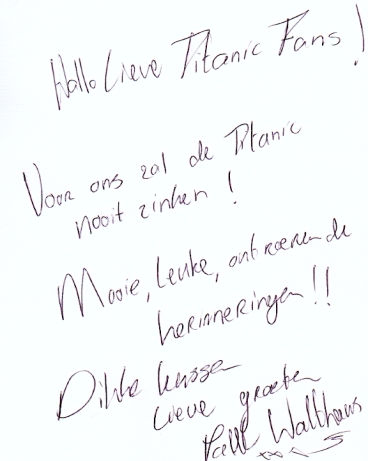 Hallo Lieve Titanic Fans!
Voor ons zal de Titanic
nooit zinken!
Mooie, leuke, ontroerende
herinneringen!!
Dikke kussen
Lieve groeten